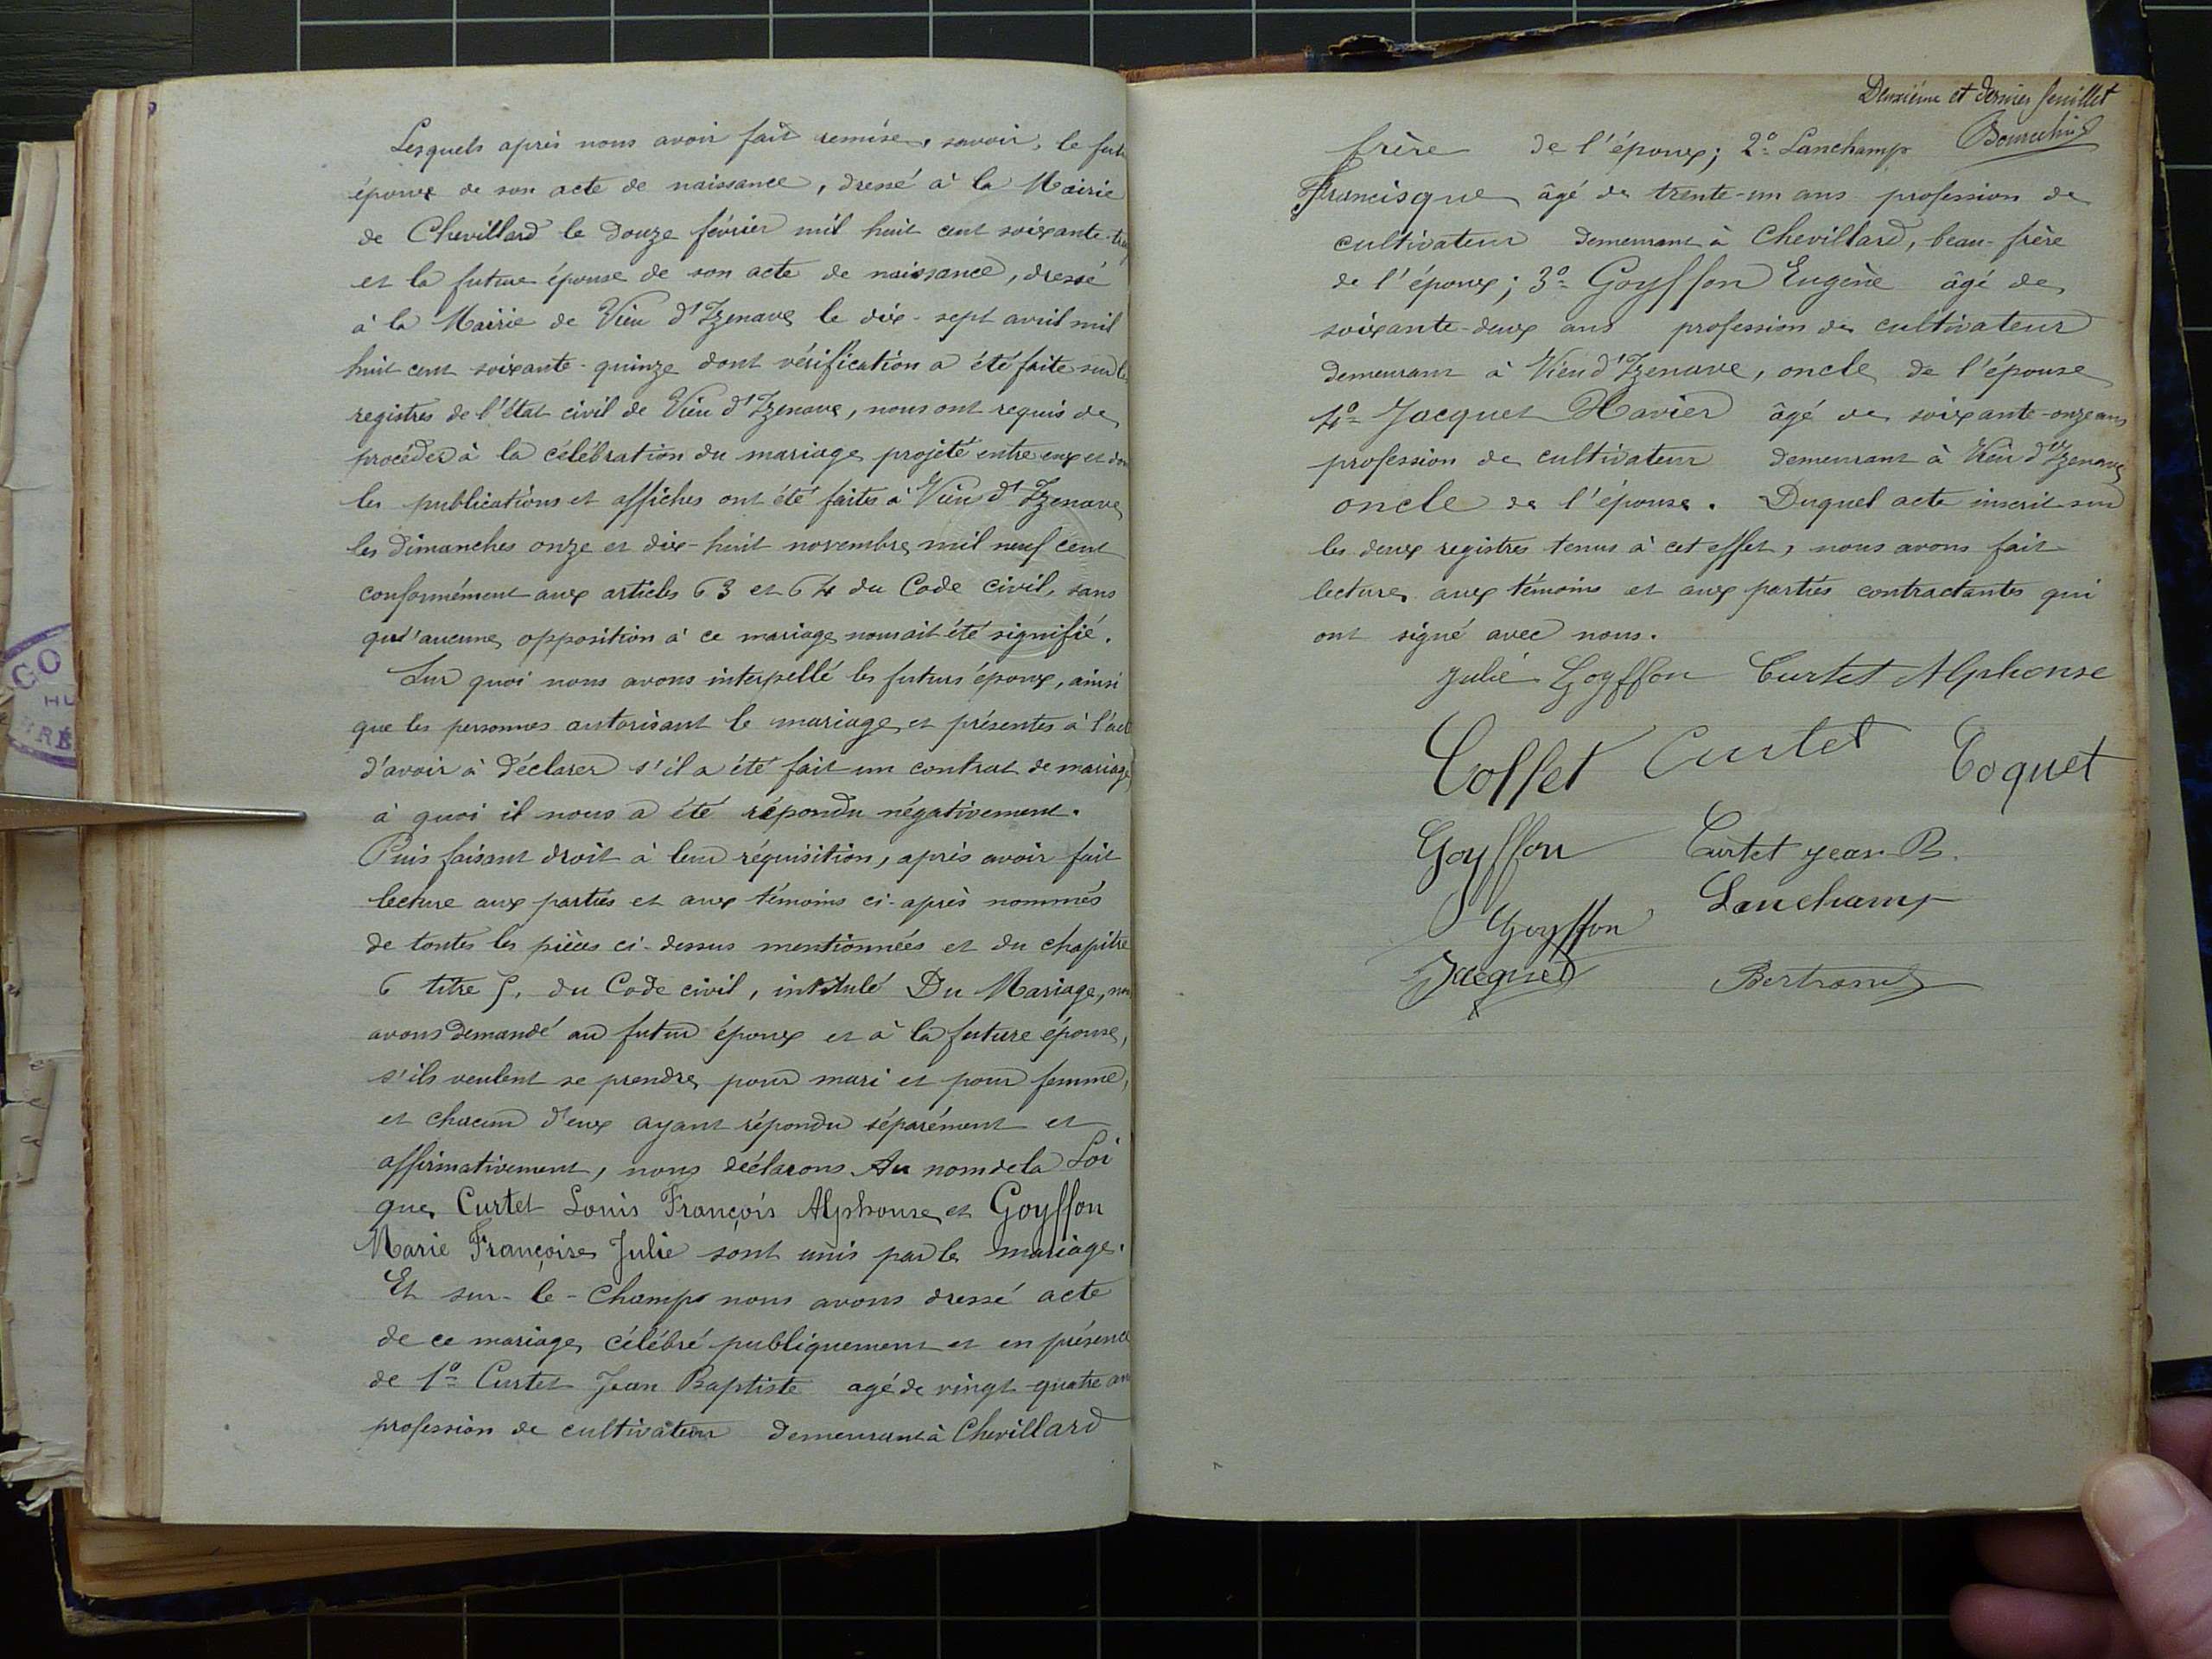 Lesquels après nous avoir fait remise, savoir, le futu
époux de son acte de naissance, dressé à la Mairie
de Chevillard le douze février mil huit cent soixante-
et la future épouse de son acte de naissance, dressé
à la Mairie de Vieu d'Izenave le dix-sept avril mil
huit cent soixante-quinze dont vérification a été faite sur le
registres de l'état civil de Vieu d'Izenave, nous ont requis de
procéder à la célébration du mariage projeté entre eux et don
les publications et affiches ont été faites à Vieu d'Izenave
les dimanches onze et dix-huit novembre mil neuf cent
conformément aux articles 63 et 64 du Code civil, sans
qu'aucune opposition à ce mariage nous ait été signifié.
Sur quoi nous avons interpellé les futurs époux, ainsi
que les personnes autorisant le mariage et présentes à l'act
d'avoir à déclarer s'il a été fait un contrat de mariage
à quoi il nous a été répondu négativement.
Puis faisant droit à leur réquisition, après avoir fait
lecture aux parties et aux témoins ci-après nommés
de toutes les pièces ci-dessus mentionnées et du chapitre
6 titre 5, du Code civil, intitulé Du Mariage, nou
avons demandé au futur époux et à la future épouse,
s'ils veulent se prendre pour mari et pour femme,
et chacun d'eux ayant répondu séparément et
affirmativement, nous déclarons Au nom de la Loi
que Curtet Louis François Alphonse et Goyffon
Marie Françoise Julie sont unis par le mariage.
Et sur-le-champ nous avons dressé acte
de ce mariage célébré publiquement et en présence
de 1° Curtet Jean Baptiste agé de vingt-quatre an
profession de cultivateur demeurant à Chevillard
Deuxième et dernier feuillet
frère de l'époux; 2° Lanchamp
Francisque âgé de trente-un ans profession de
cultivateur demeurant à Chevillard, beau-frère
de l'époux; 3° Goyffon Eugène âgé de
soixante-deux ans profession de cultivateur
demeurant à Vieu d'Izenave, oncle de l'épouse
4° Jacquet Xavier âgé de soixante-onze ans
profession de cultivateur demeurant à Vieu d'Izenave
oncle de l'épouse. Duquel acte inscrit sur
les deux registres tenus à cet effet, nous avons fait
lecture aux témoins et aux parties contractantes qui
ont signé avec nous.
Julie Goyffon Curtet Alphonse
Collet Curtet Coquet
Goyffon Curtet Jean B.
Lanchamp
Goyffon
Jacquet Bertrand